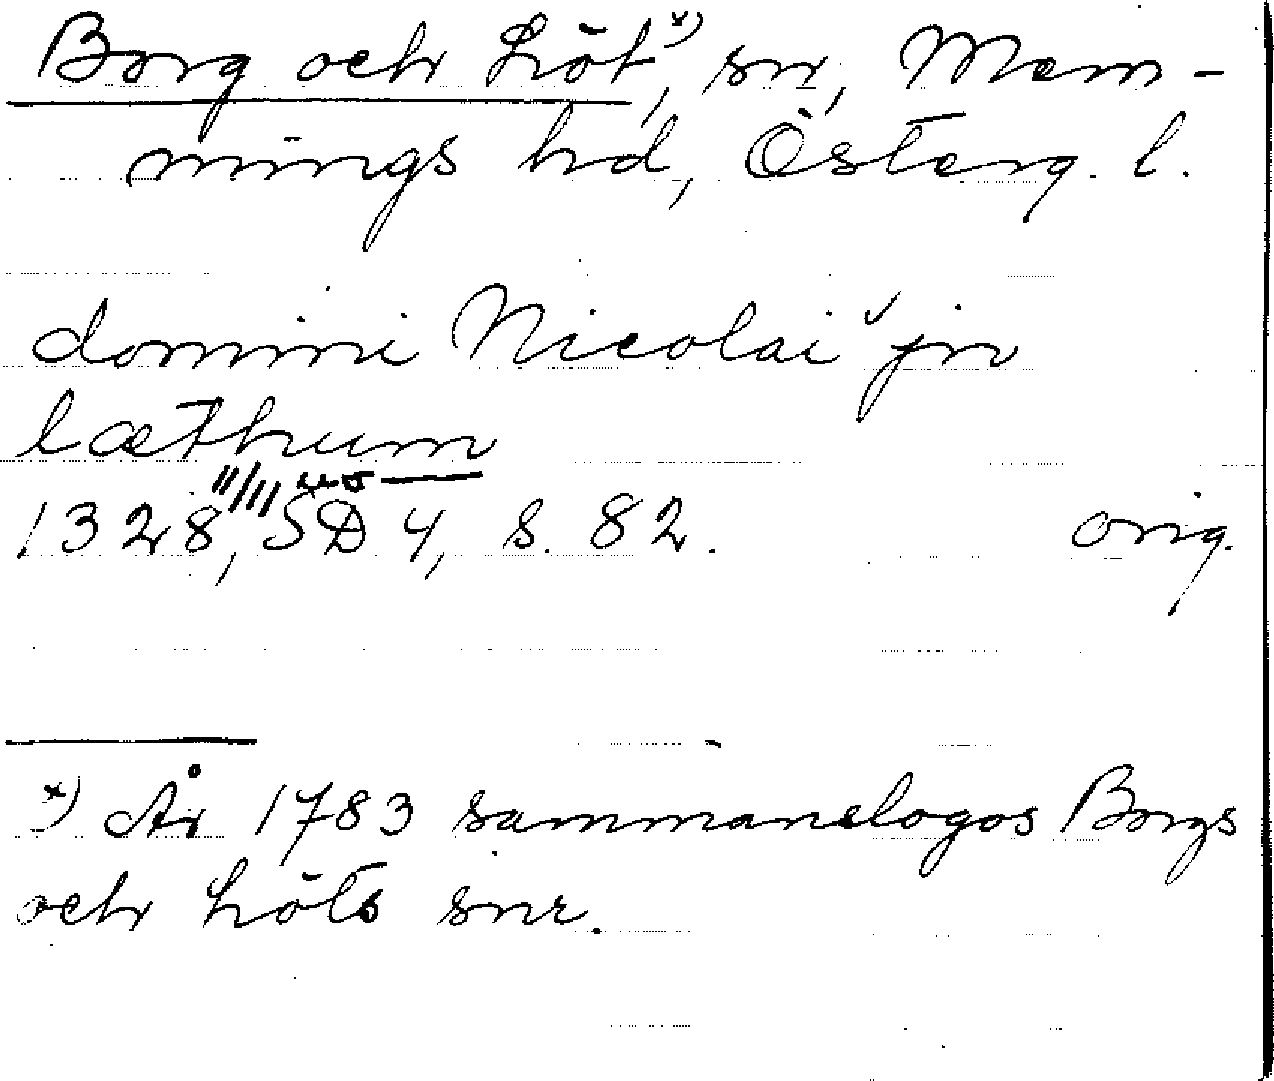 Borg och Löt,ˣ⁾ sn, Mem-
mings hd, Österg. l.
domini Nicolai jn
læthum
11/11
1328, SD 4, s. 82. orig.
x) År 1783 sammanslogos Borgs
och Löts snr.